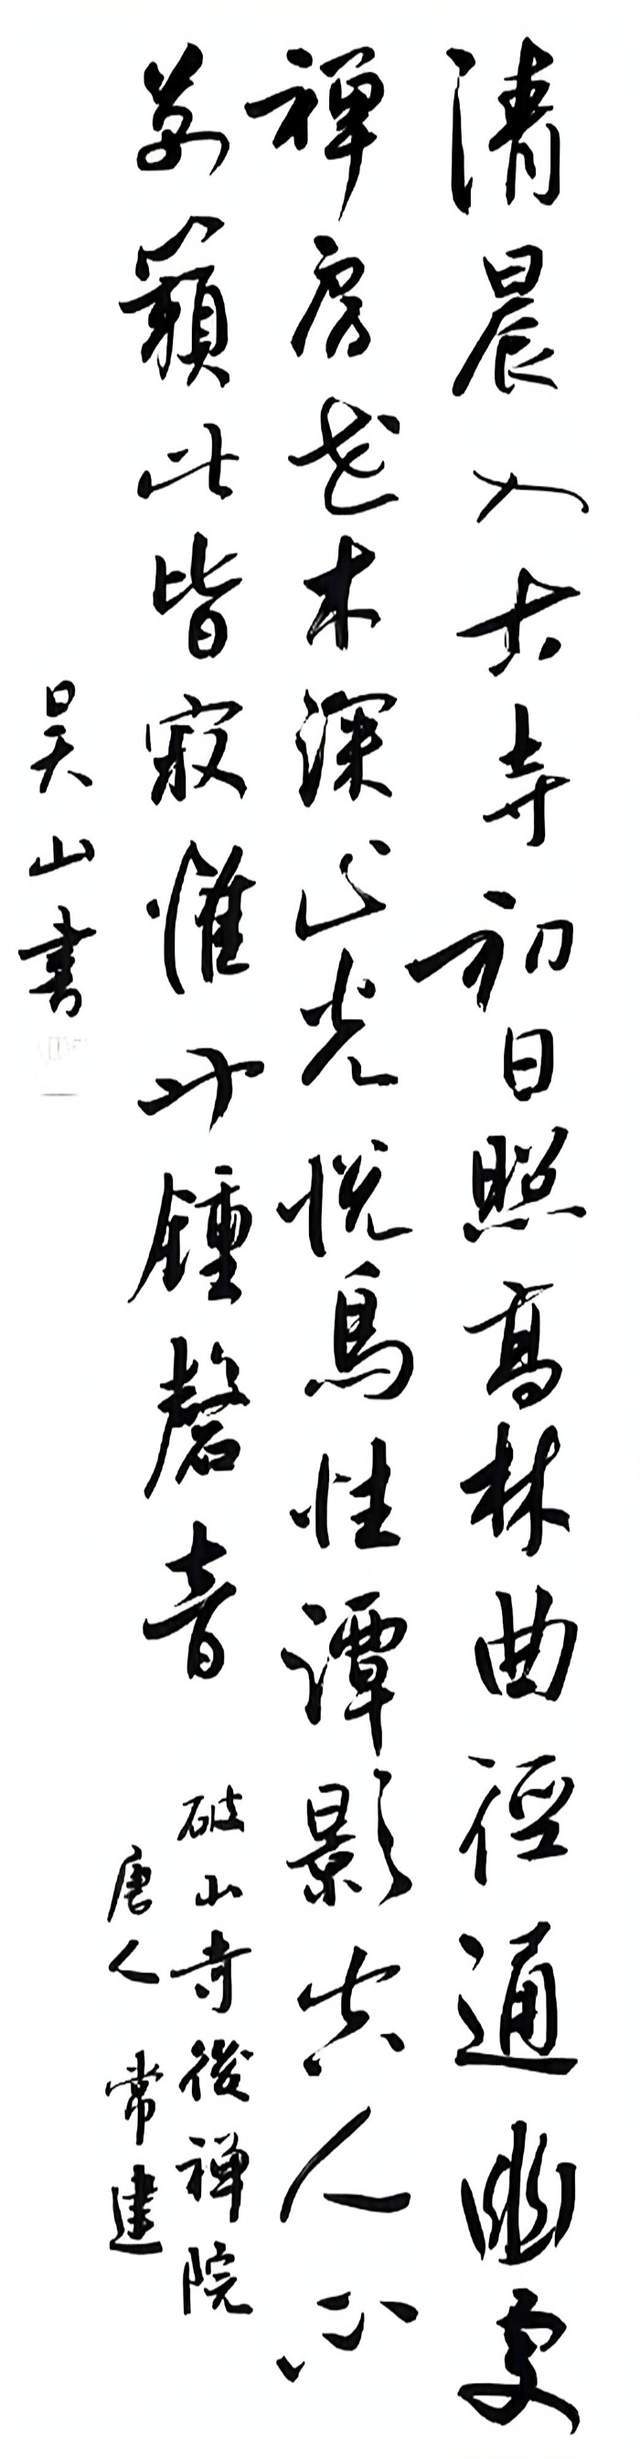 清晨入古寺初日照高林曲徑通幽處
禅房花木深山光悦鳥性潭影空人心
萬籟此皆寂惟以鍾磬音
破山寺後禅院
唐人常建
吴山書